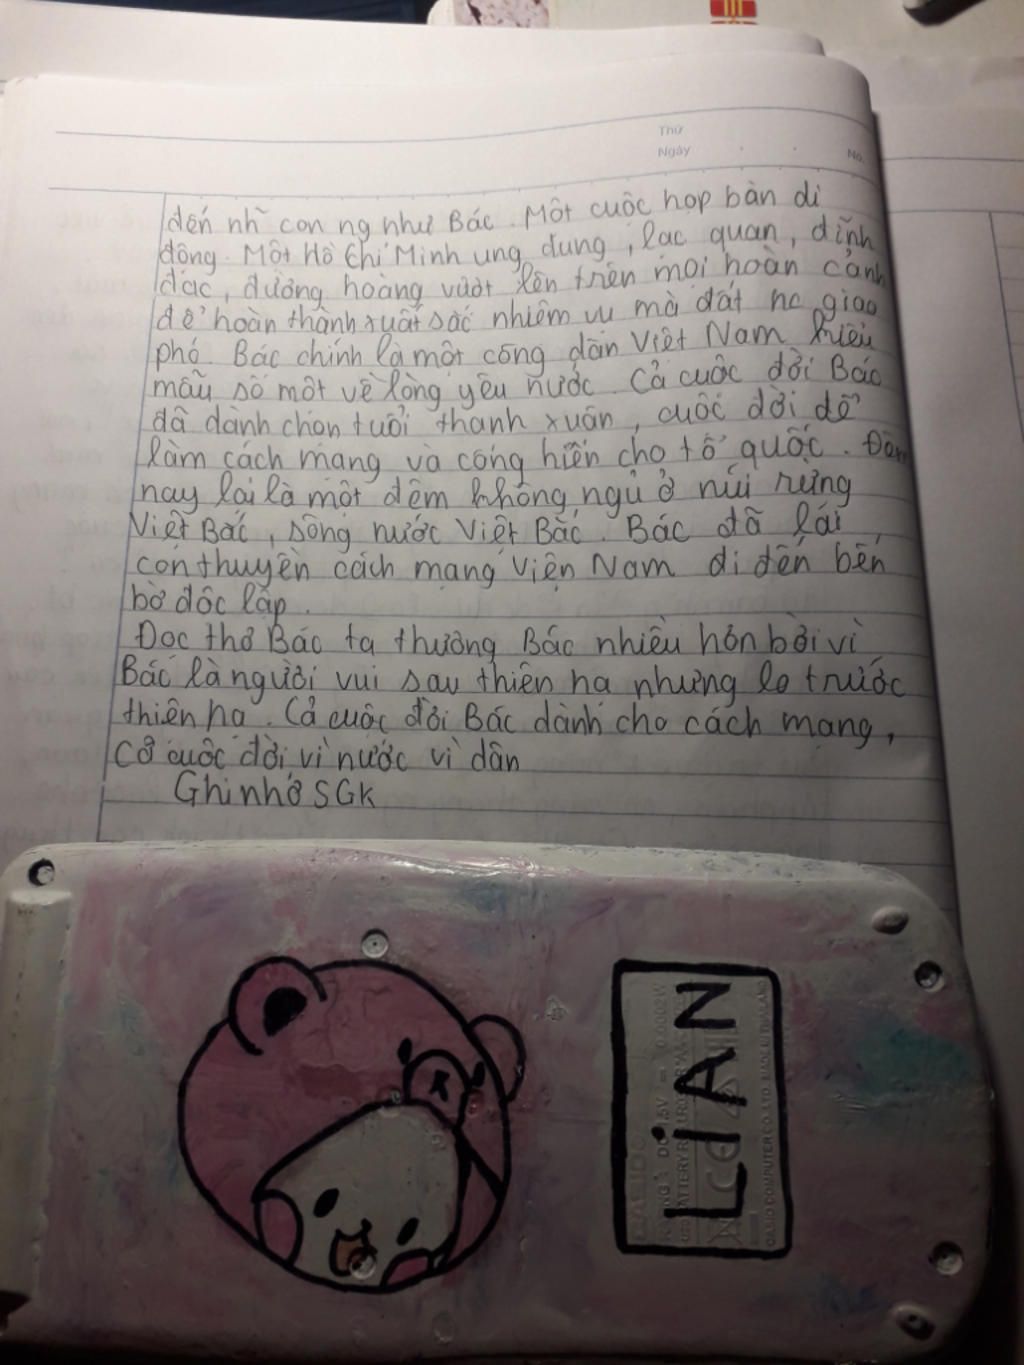 Thứ
Ngày
No.
đến nh~ con ng như Bác. Một cuộc họp bàn di
động. Một Hồ Chí Minh ung dung, lạc quan, đĩnh
đạc, đường hoàng vượt lên trên mọi hoàn cảnh
để hoàn thành xuất sắc nhiệm vụ mà đất nc giao
phó. Bác chính là một công dân Việt Nam kiểu
mẫu số một về lòng yêu nước. Cả cuộc đời Bác
đã dành chọn tuổi thanh xuân, cuộc đời để
làm cách mạng và cống hiến cho tổ quốc. Đêm
nay lại là một đêm không ngủ ở núi rừng
Việt Bắc, sông nước Việt Bắc. Bác đã lái
con thuyền cách mạng Viện Nam đi đến bến
bờ độc lập.
Đọc thơ Bác ta thương Bác nhiều hơn bởi vì
Bác là người vui sau thiên hạ nhưng lo trước
thiên hạ. Cả cuộc đời Bác dành cho cách mạng,
cả cuộc đời vì nước vì dân
Ghi nhớ SGK
LiAN
CASIO COMPUTER CO., LTD.